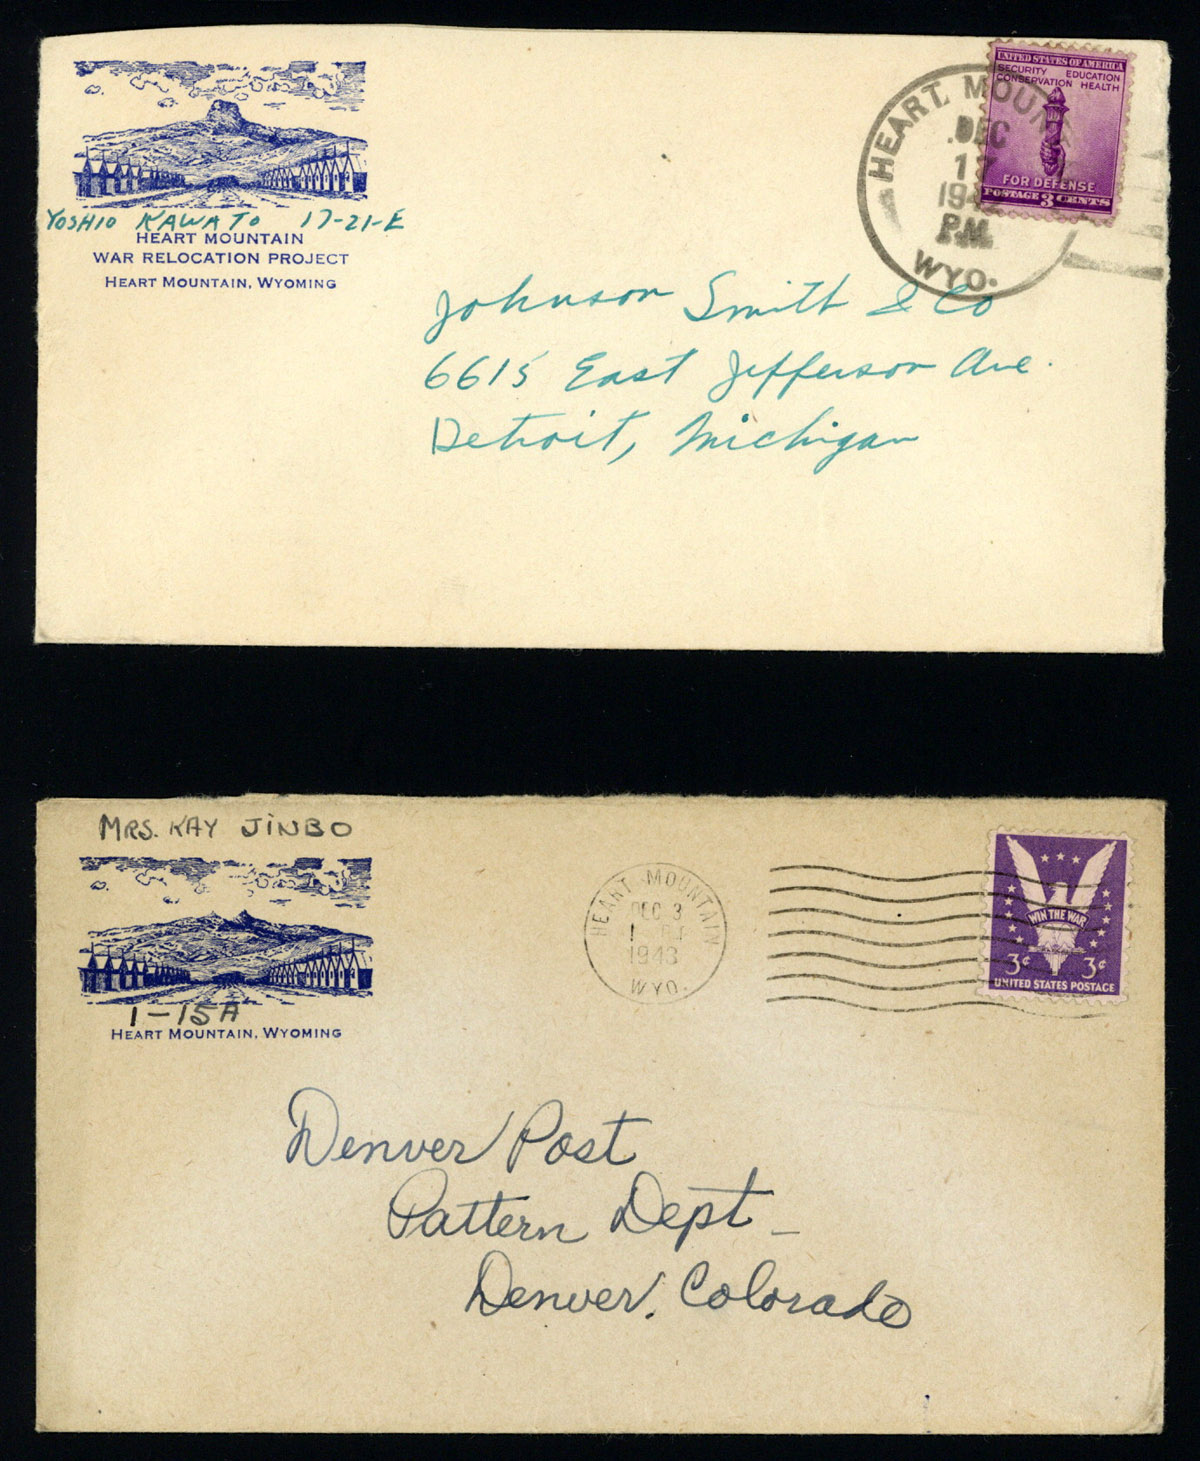 YOSHIO KAWATO 17-21-E
HEART MOUNTAIN
WAR RELOCATION PROJECT
HEART MOUNTAIN, WYOMING
HEART MOUNT
DEC
17
194
P.M.
WYO.
UNITED STATES OF AMERICA
SECURITY EDUCATION
CONSERVATION HEALTH
FOR DEFENSE
POSTAGE 3 CENTS
Johnson Smith & Co
6615 East Jefferson Ave.
Detroit, Michigan
MRS. KAY JINBO
1-15A
HEART MOUNTAIN, WYOMING
HEART MOUNTAIN
DEC 3
1
1943
WYO.
WIN THE WAR
3¢ 3¢
UNITED STATES POSTAGE
Denver Post
Pattern Dept-
Denver, Colorado